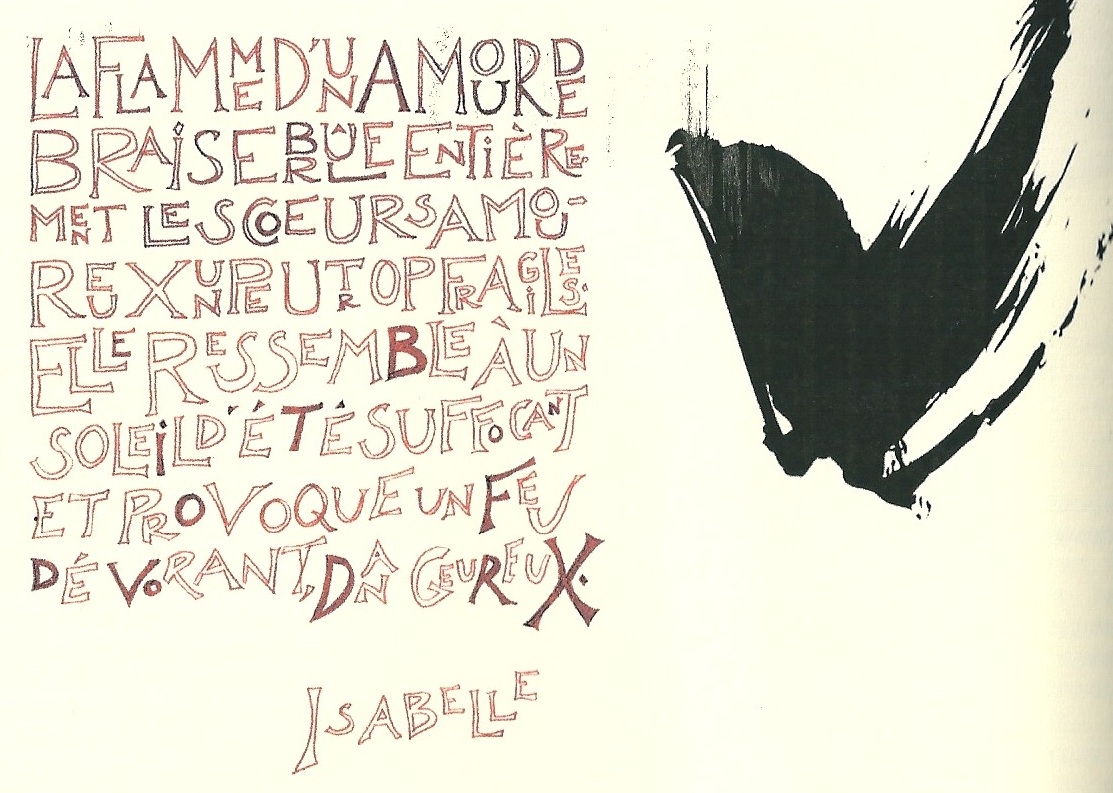 LA FLAMME D'UN AMOUR DE
BRAISE BRÛLE ENTIÈRE-
MENT LES CŒURS AMOU-
REUX UN PEU TROP FRAGILES.
ELLE RESSEMBLE À UN
SOLEIL D'ÉTÉ SUFFOCANT
ET PROVOQUE UN FEU
DÉVORANT, DANGEUREUX.
ISABELLE